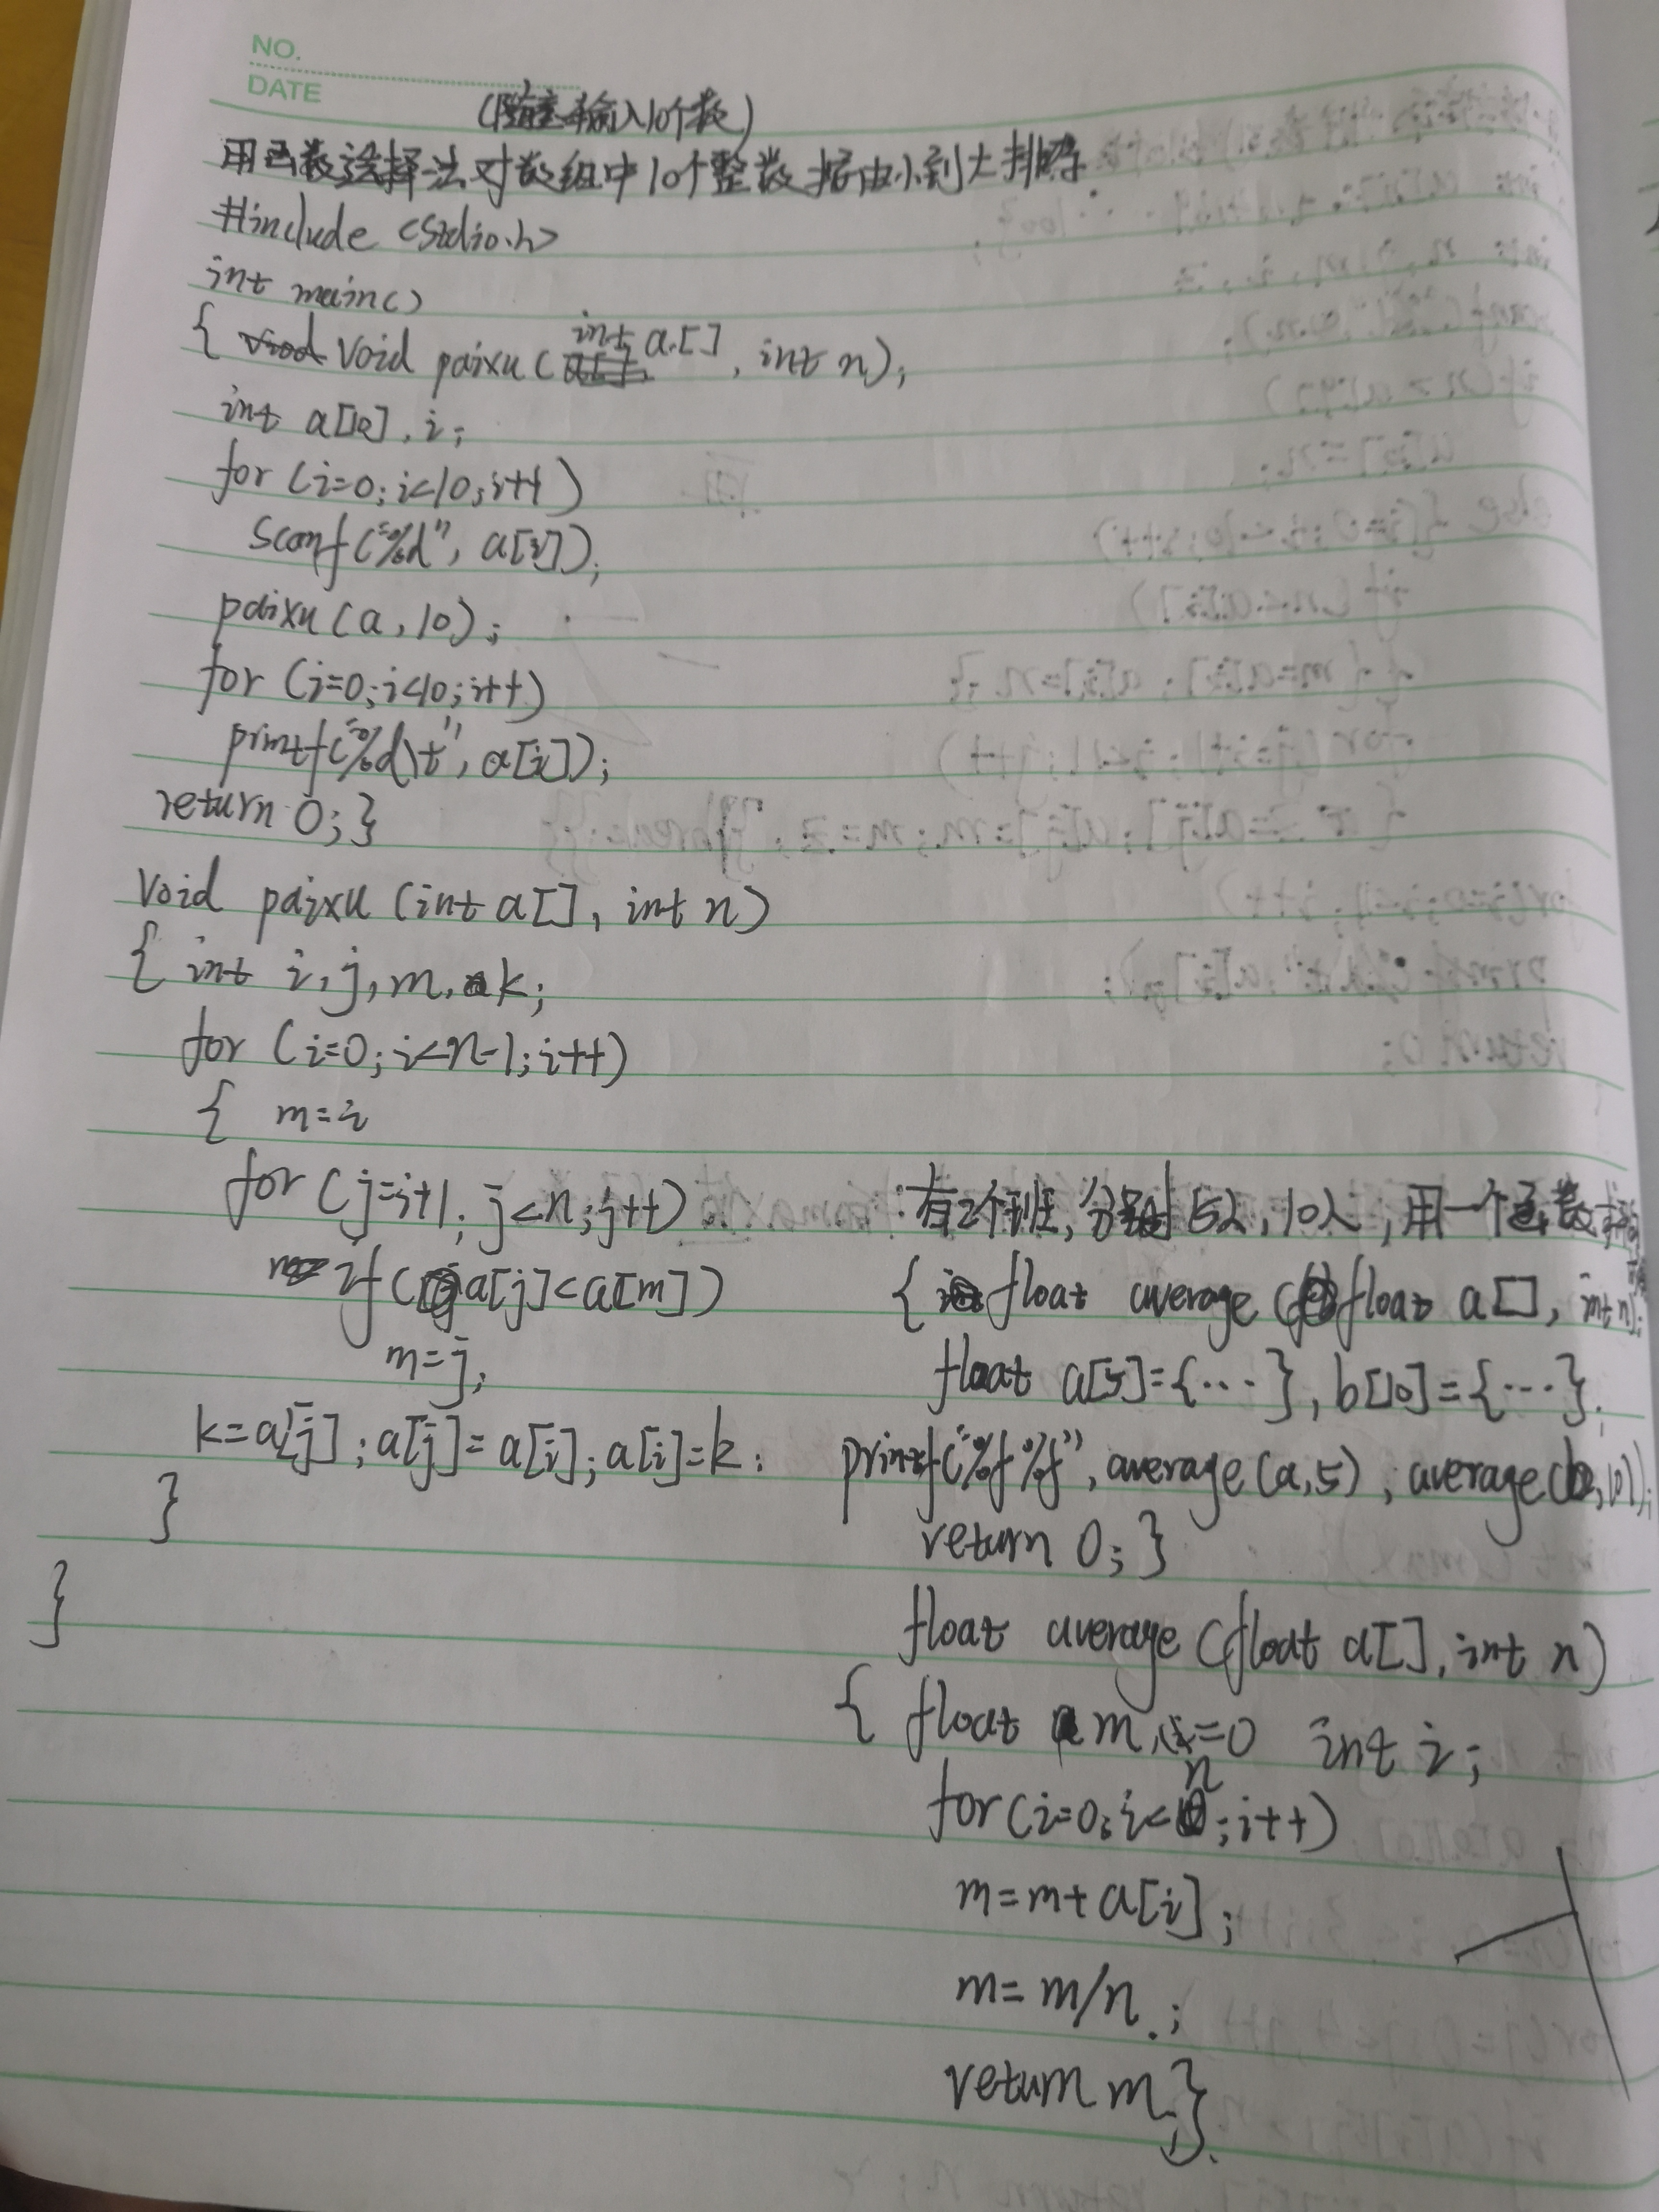 NO.
DATE
(随意输入10个数)
用函数选择法对数组中10个整数据由小到大排序
#include <stdio.h>
int main()
{ void paixu (int a[], int n);
int a[10], i;
for (i=0; i<10; i++)
scanf("%d", a[i]);
paixu (a, 10);
for (i=0; i<10; i++)
printf("%d\t", a[i]);
return 0; }
void paixu (int a[], int n)
{ int i, j, m, k;
for (i=0; i<n-1; i++)
{ m=i
for (j=i+1; j<n; j++)
if (a[j]<a[m])
m=j;
k=a[j]; a[j]=a[i]; a[i]=k;
}
}
有2个班, 分别 5人, 10人, 用一个函数
{ float average (float a[], int n);
float a[5]={…}, b[10]={…};
printf("%f %f", average (a,5), average(b,10));
return 0; }
float average (float a[], int n)
{ float m=0 int i;
for (i=0; i<n; i++)
m=m+a[i];
m=m/n;
return m; }